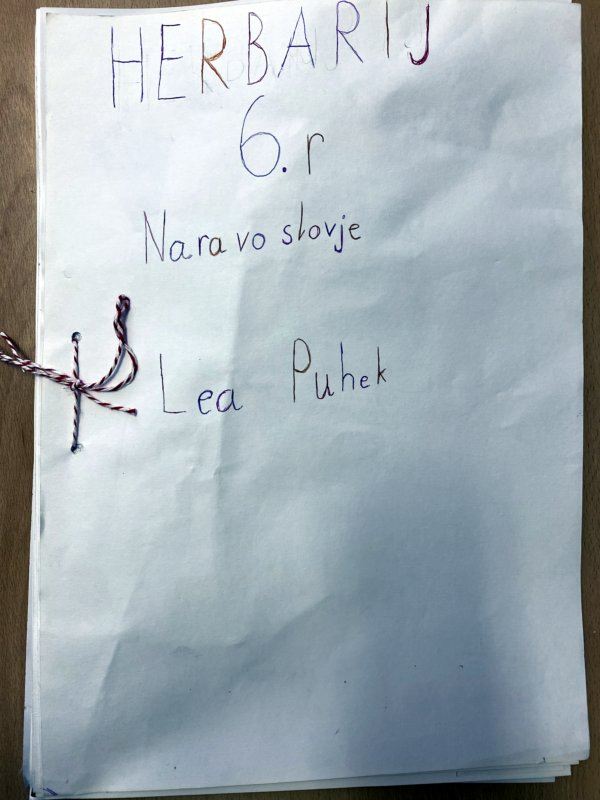 HERBARIJ
6. r
Naravoslovje
Lea Puhek